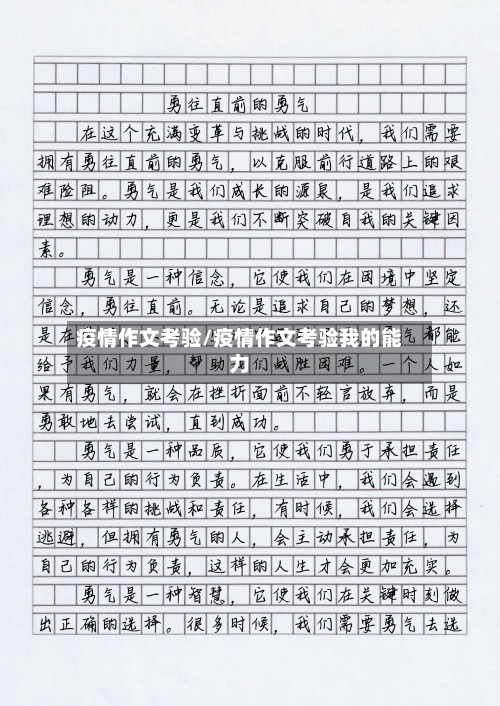 勇往直前的勇气
在这个充满变革与挑战的时代，我们需要
拥有勇往直前的勇气，以克服前行道路上的艰
难险阻。勇气是我们成长的源泉，是我们追求
理想的动力，更是我们不断突破自我的关键因
素。
勇气是一种信念，它使我们在困境中坚定
信念，勇往直前。无论是追求自己的梦想，还
是在
气都能
疫情作文考验/疫情作文考验我的能
力
给予我们力量，帮助我们战胜困难。一个人如
果有勇气，就会在挫折面前不轻言放弃，而是
勇敢地去尝试，直到成功。
勇气是一种品质，它使我们勇于承担责任
，为自己的行为负责。在生活中，我们会遇到
各种各样的挑战和责任，有时候，我们会选择
逃避，但拥有勇气的人，会主动承担责任，为
自己的行为负责，这样的人生才会更加充实。
勇气是一种智慧，它使我们在关键时刻做
出正确的选择。很多时候，我们需要勇气去选